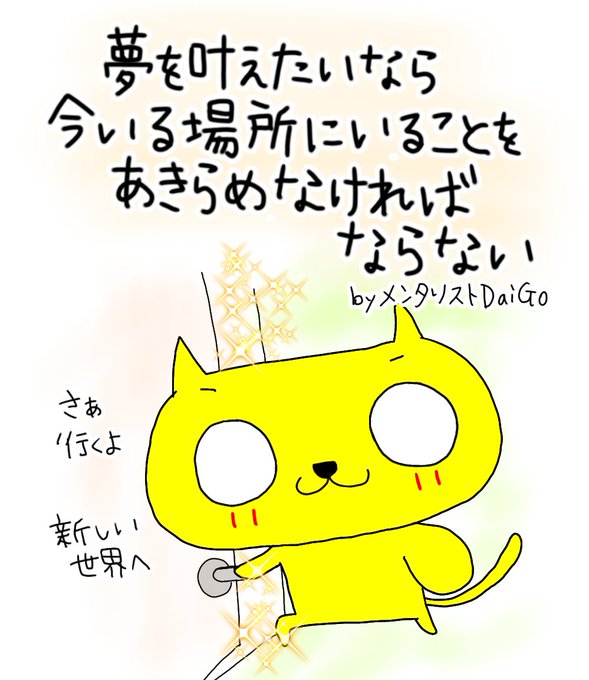 夢を叶えたいなら
今いる場所にいることを
あきらめなければ
ならない
byメンタリストDaiGo
さぁ
行くよ
新しい
世界へ